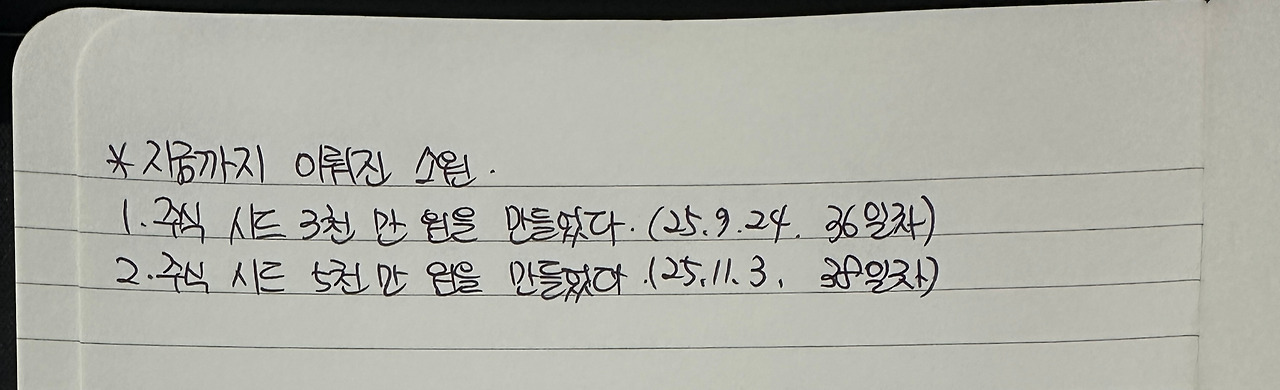 * 지금까지 이뤄진 소원.
1. 주식 시드 3천 만 원을 만들었다. (25.9.24. 36일차)
2. 주식 시드 5천 만 원을 만들었다. (25.11.3. 38일차)